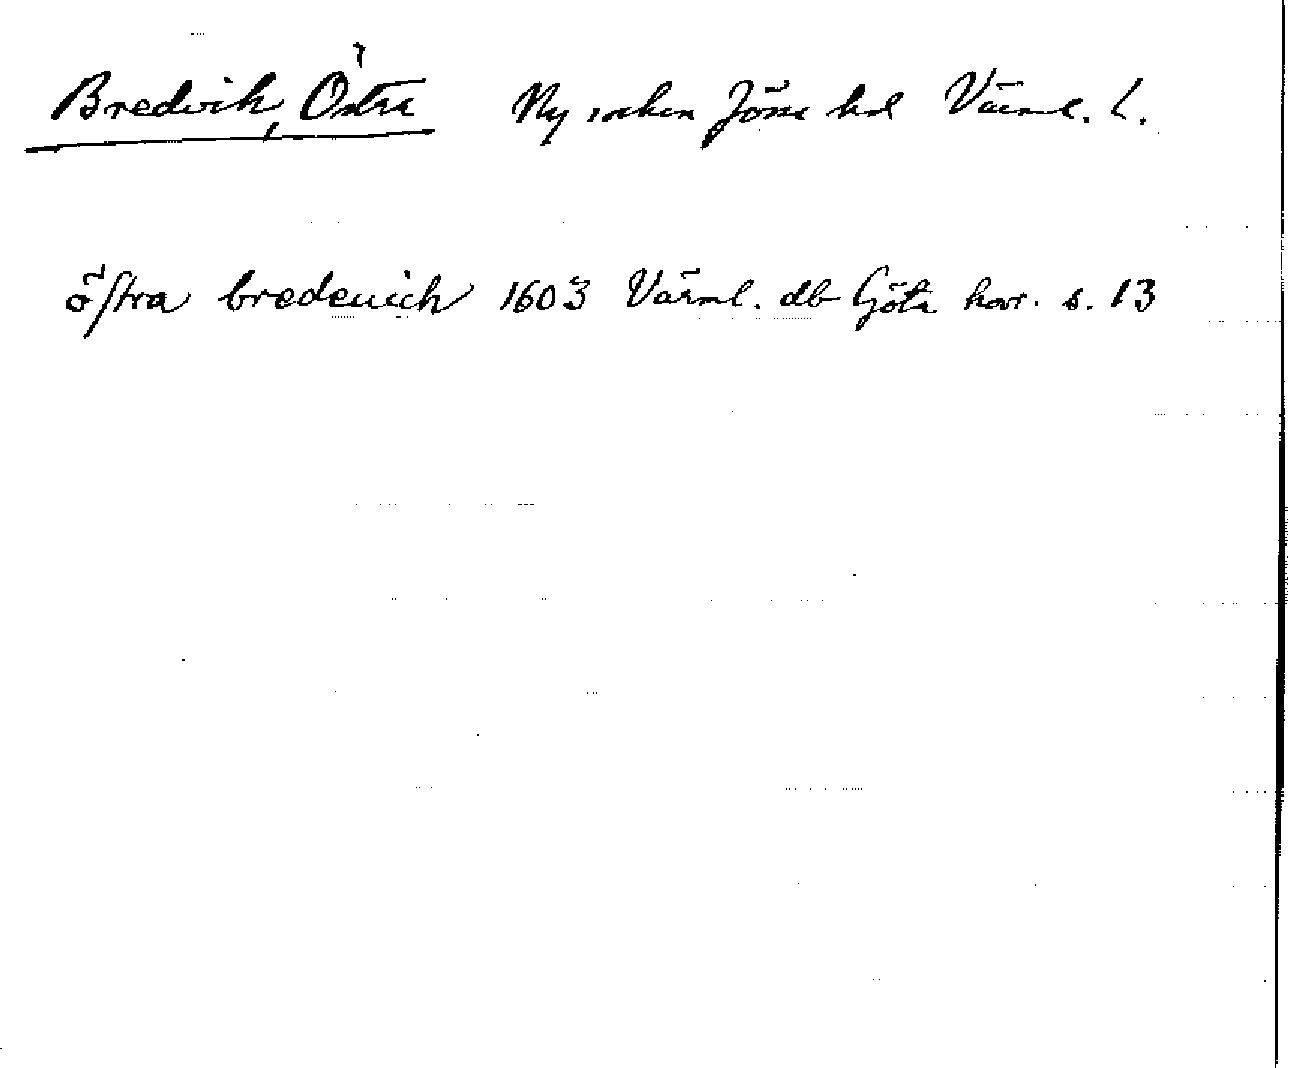 Bredvik, Östra Ny socken Jösse hd Värml. L.
öſtra bredeuich 1603 Värml. db Göta hovr. s. 13